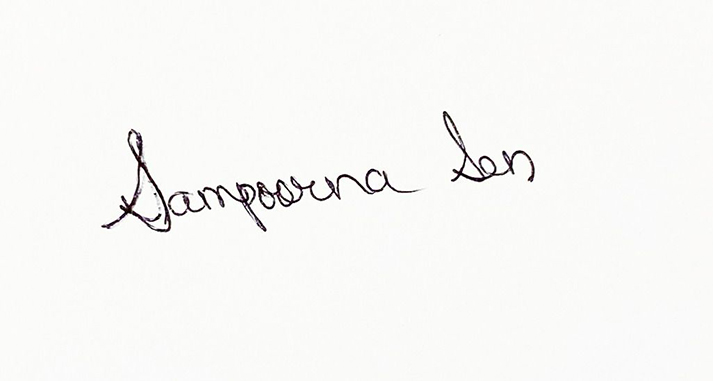 Sampoorna Sen